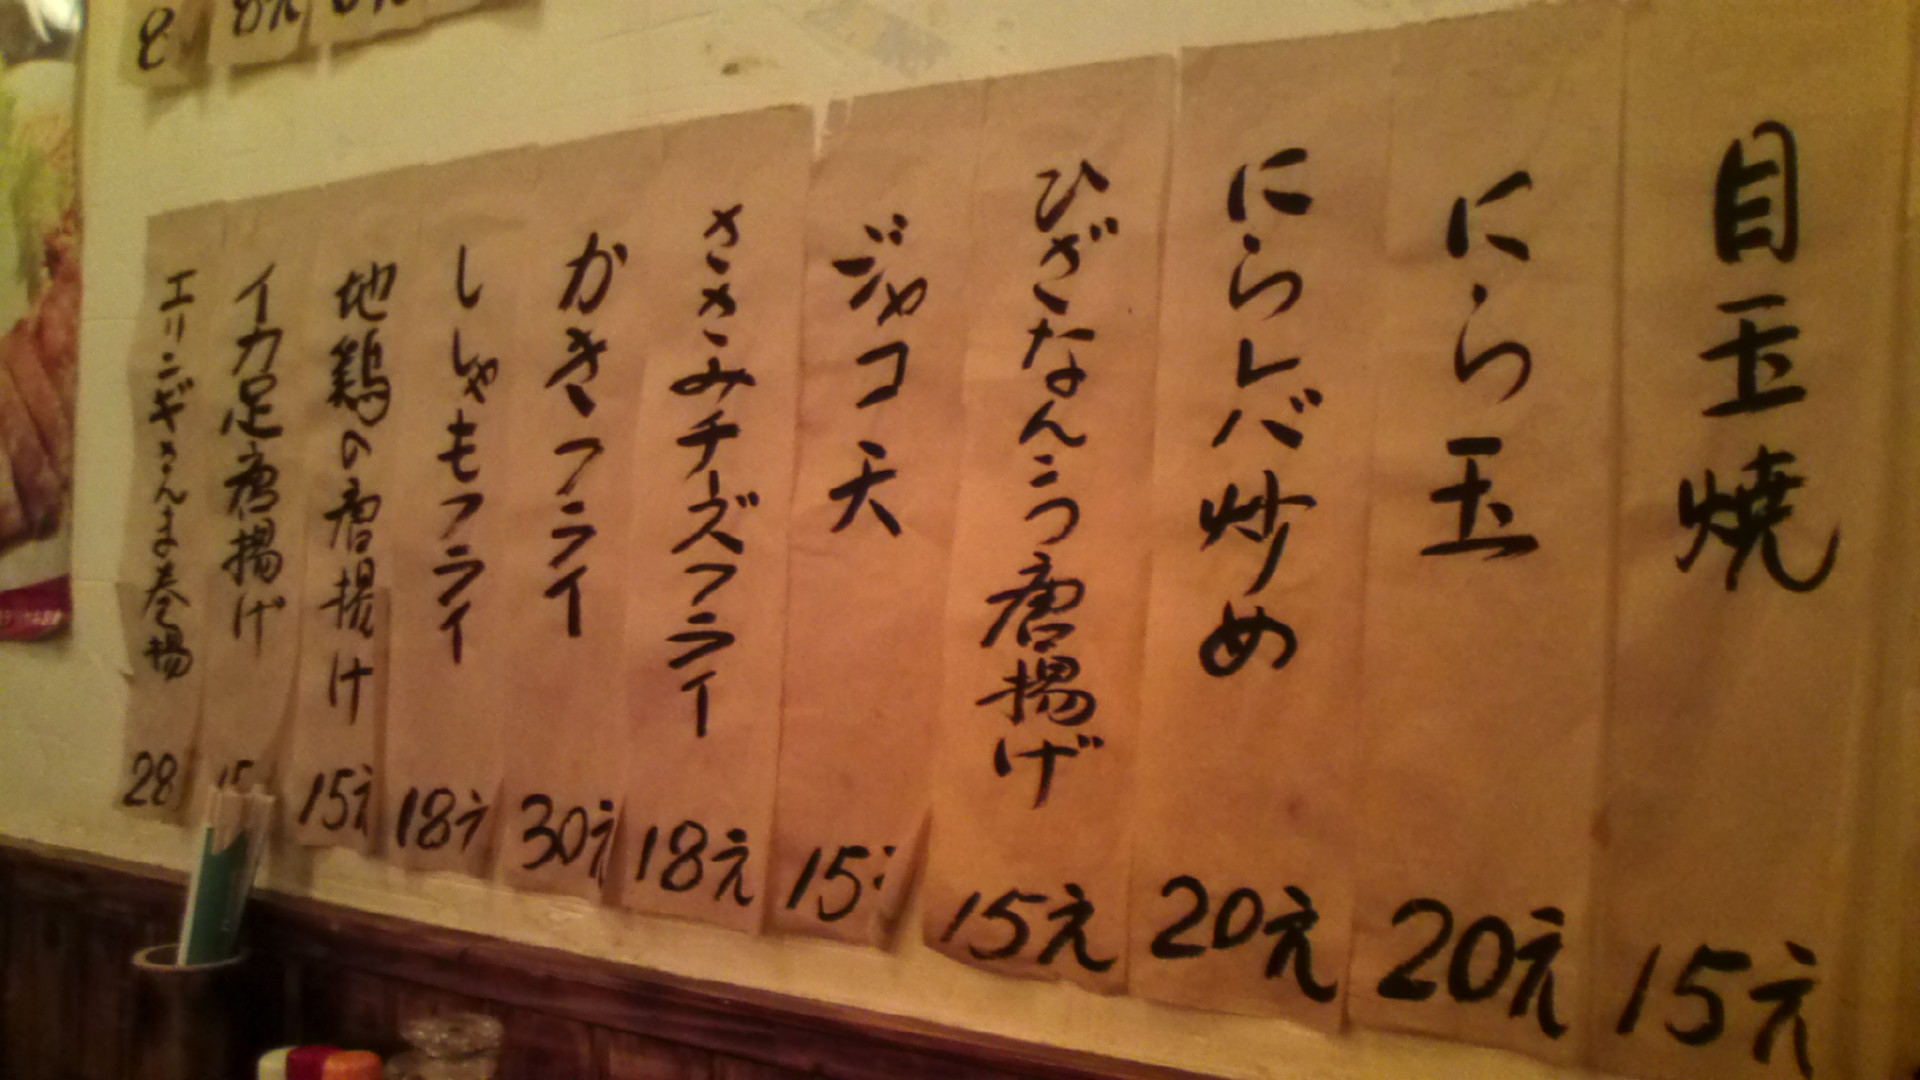 目玉焼 15元
にら玉 20元
にらレバ炒め 20元
ひざなんこつ唐揚げ 15元
ジャコ天 15
ささみチーズフライ 18元
かきフライ 30元
ししゃもフライ 18元
地鶏の唐揚け 15元
イカ足唐揚げ 15
エリンギさんま巻揚 28